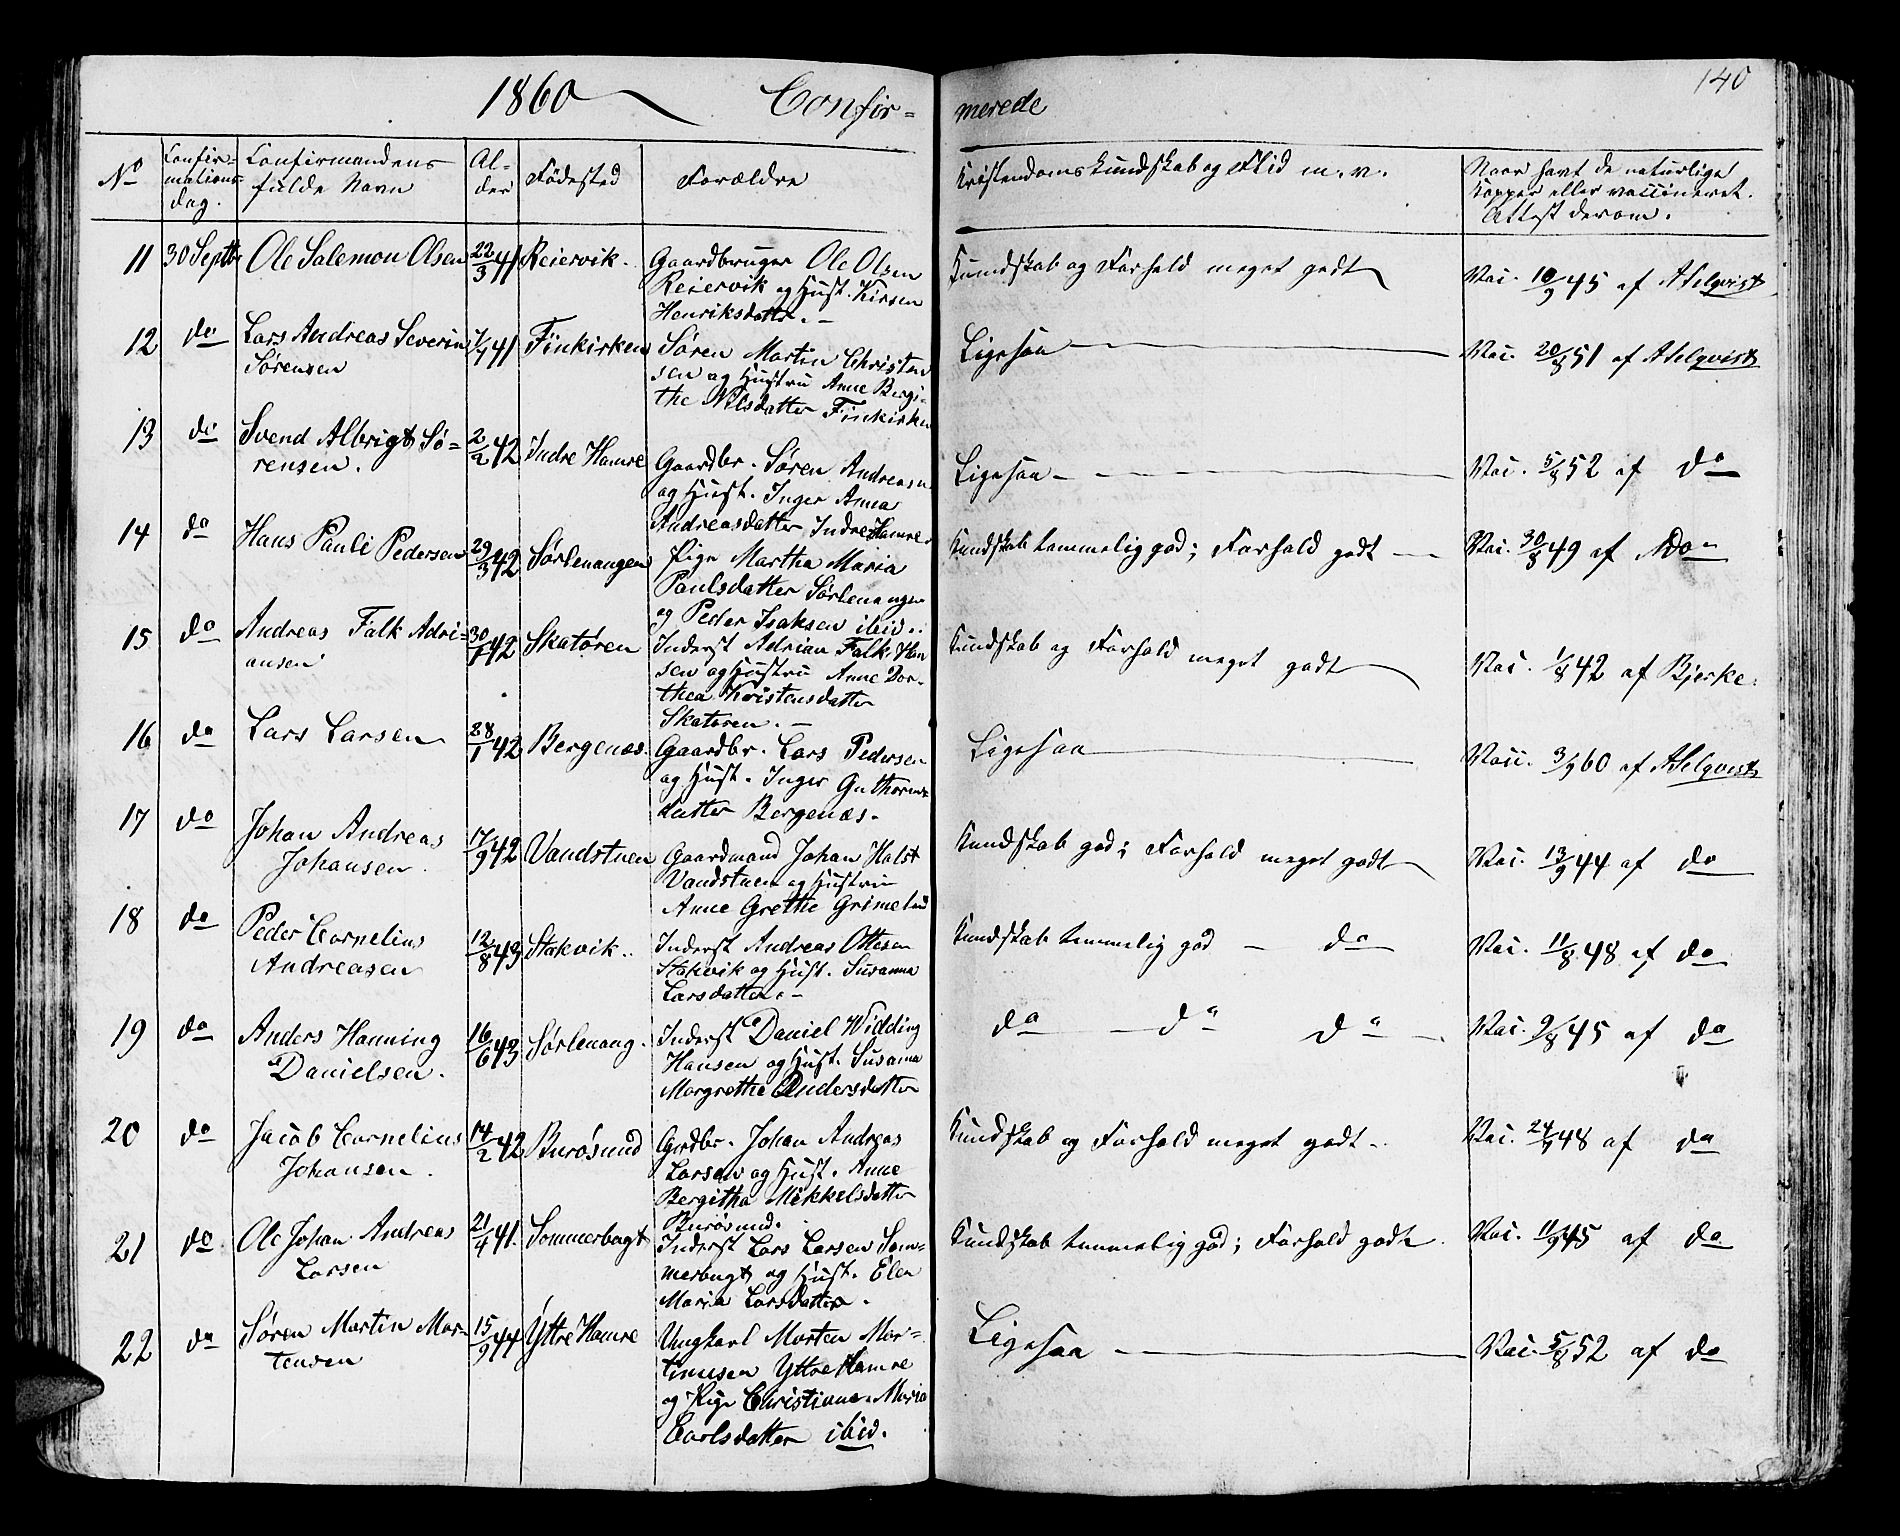 140
1860 Confir= merede
No Confir= mations dag. Confirmandens fulde Navn Al- der Födested Forældre Kristendomskundskab og Flid m. v. Naar havt de naturlige Kopper eller vaccineret. Attest derom.
11 30 Septbr Ole Salomon Olsen 22/3 41 Reiervik Gaardbruger Ole Olsen Kundskab og Forhold meget godt Vac. 10/9 45 af Ahlqvist
Reiervik og Hust. Kirsen
Henriksdatter. –
12 do Lars Andreas Severin 1/41 Finkirken Søren Martin Christen Ligesaa Vac. 20/8 51 af Ahlqvist
Sørensen sen og Hustru Anne Bergi-
the Nilsdatter Finkirken
13 do Svend Albrigt Sö= 2/2 42 Indre Hamre Gaardbr. Sören Andreasen Ligesaa Vac. 5/8 52 af do
rensen. og Hust. Inger Anna
Andreasdatter Indre Hamre
14 do Hans Pauli Pedersen 29/3 42 Sörlenangen Pige Martha Maria Kundskab temmelig god; Forhold godt Vac. 30/8 49 af do
Paulsdatter Sörlenangen
og Peder Isaksen ibid.
15 do Andreas Falk Adri- 30/1 42 Skatören Inderst Adrian Falk Han Kundskab og Forhold meget godt Vac. 1/8 42 af Bjerke.
ansen sen og Hustru Anne Dor-
thea Kristensdatter
Skatoren. –
16 do Lars Larsen 28/1 42 Bergenæs. Gaardbr. Lars Pedersen Ligesaa Vacc. 3/9 60 af Ahlqvist
og Hust. Inger Guthorms
datter Bergenæs.
17 do Johan Andreas 17/9 42 Vandstuen Gaardmand Johan Holst Kundskab god; Forhold meget godt Vac. 13/9 44 af do
Johansen. Vandstuen og Hustru
Anne Grethe Grimelund
18 do Peder Cornelius 12/8 43 Stakvik. Inderst Andreas Ottesen Kundskab temmelig god – do Vac. 11/8 48 af do
Andreasen Stakvik og Hust. Susanna
Larsdatter. –
19 do Anders Hanning 16/6 43 Sörlenang. Inderst Daniel Widding do do do Vac. 9/8 45 af do
Danielsen. Hansen og Hust. Susanna
Margrethe Andersdatter
20 do Jacob Cornelius 14/2 42 Burösund Grdbr. Johan Andreas Kundskab og Forhold meget godt Vac. 24/ 48 af do
Johansen. Larsen og Hust. Anne
Bergitha Mikkelsdatter
Burösund.
21 do Ole Johan Andreas 21/4 41. Sommerbugt Inderst Lars Larsen Som= Kundskab temmelig god; Forhold godt. Vac. 11/9 45 af do
Larsen merbugt og Hust. Elen
Maria Larsdatter.
22 do Sören Martin Mor- 15/9 44 Yttre Hamre Ungkarl Morten Mor= Ligesaa Vac. 5/8 52 af do
tensen timesen Yttre Hamre
og Pige Christiane Maria
Carlsdatter ibid.